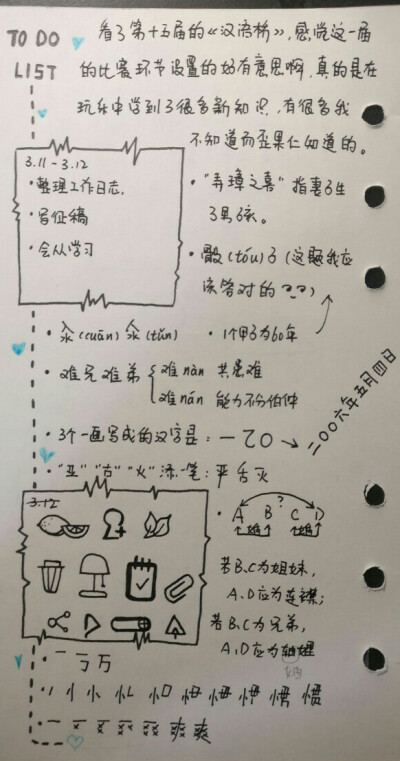 TO DO LIST
看了第十五届的《汉语桥》,感觉这一届
的比赛环节设置的好有意思啊,真的是在
玩乐中学到了很多新知识,有很多我
不知道而歪果仁知道的。
3.11-3.12
·整理工作日志,
·写征稿
·会从学习
·"弄璋之喜"指妻子生
了男孩。
·骰(tóu)子(这题我应
该答对的??)
·氽(cuān) 汆(tǔn)
·1个甲子为60年
·难兄难弟 { 难nàn 共患难
难nán 能力不分伯仲
·3个一画写成的汉字是:一乙〇→二〇〇六年五月四日
·"亚""古""火"添一笔:严舌灭
3.12
·A B C D
?
若B、C为姐妹,
A、D应为连襟;
若B、C为兄弟,
A、D应为妯娌
·一丂万